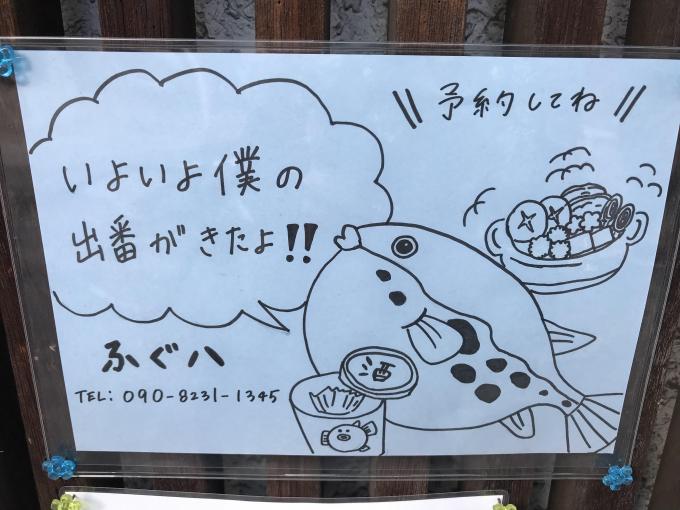 \\ 予約してね //
いよいよ僕の
出番がきたよ!!
ふぐ八
TEL: 090-8231-1345
酒